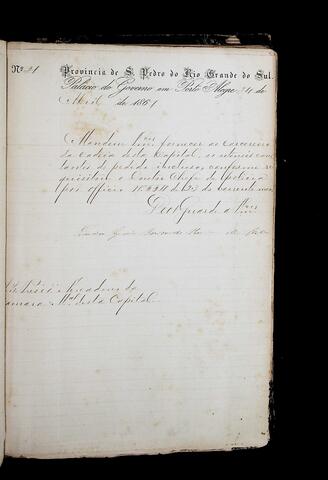 Nº 21 Provincia de S. Pedro do Rio Grande do Sul.
Palacio do Governo em Porto Alegre 24 de
Abril de 1861
Mandem Vmces fornecer ao Carcereiro
da Cadeia desta Capital, os utensis cons-
tantes do pedido incluso, conforme re-
quisitou o Doutor Chefe de Policia
por officio de 23 do corrente mez
Deus Guarde a Vmces
Camara Mal desta Capital